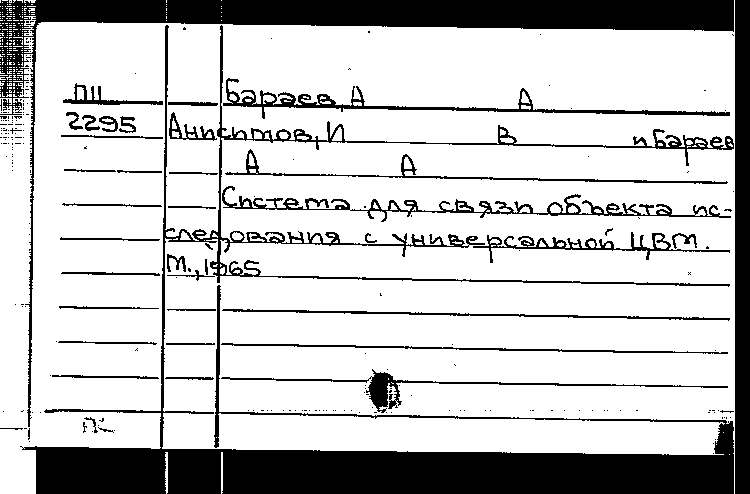 ПII Бараев, А А
2295 Анисимов, И В и Бараев
А А
Система для связи объекта ис-
следования с универсальной ЦВМ.
М., 1965